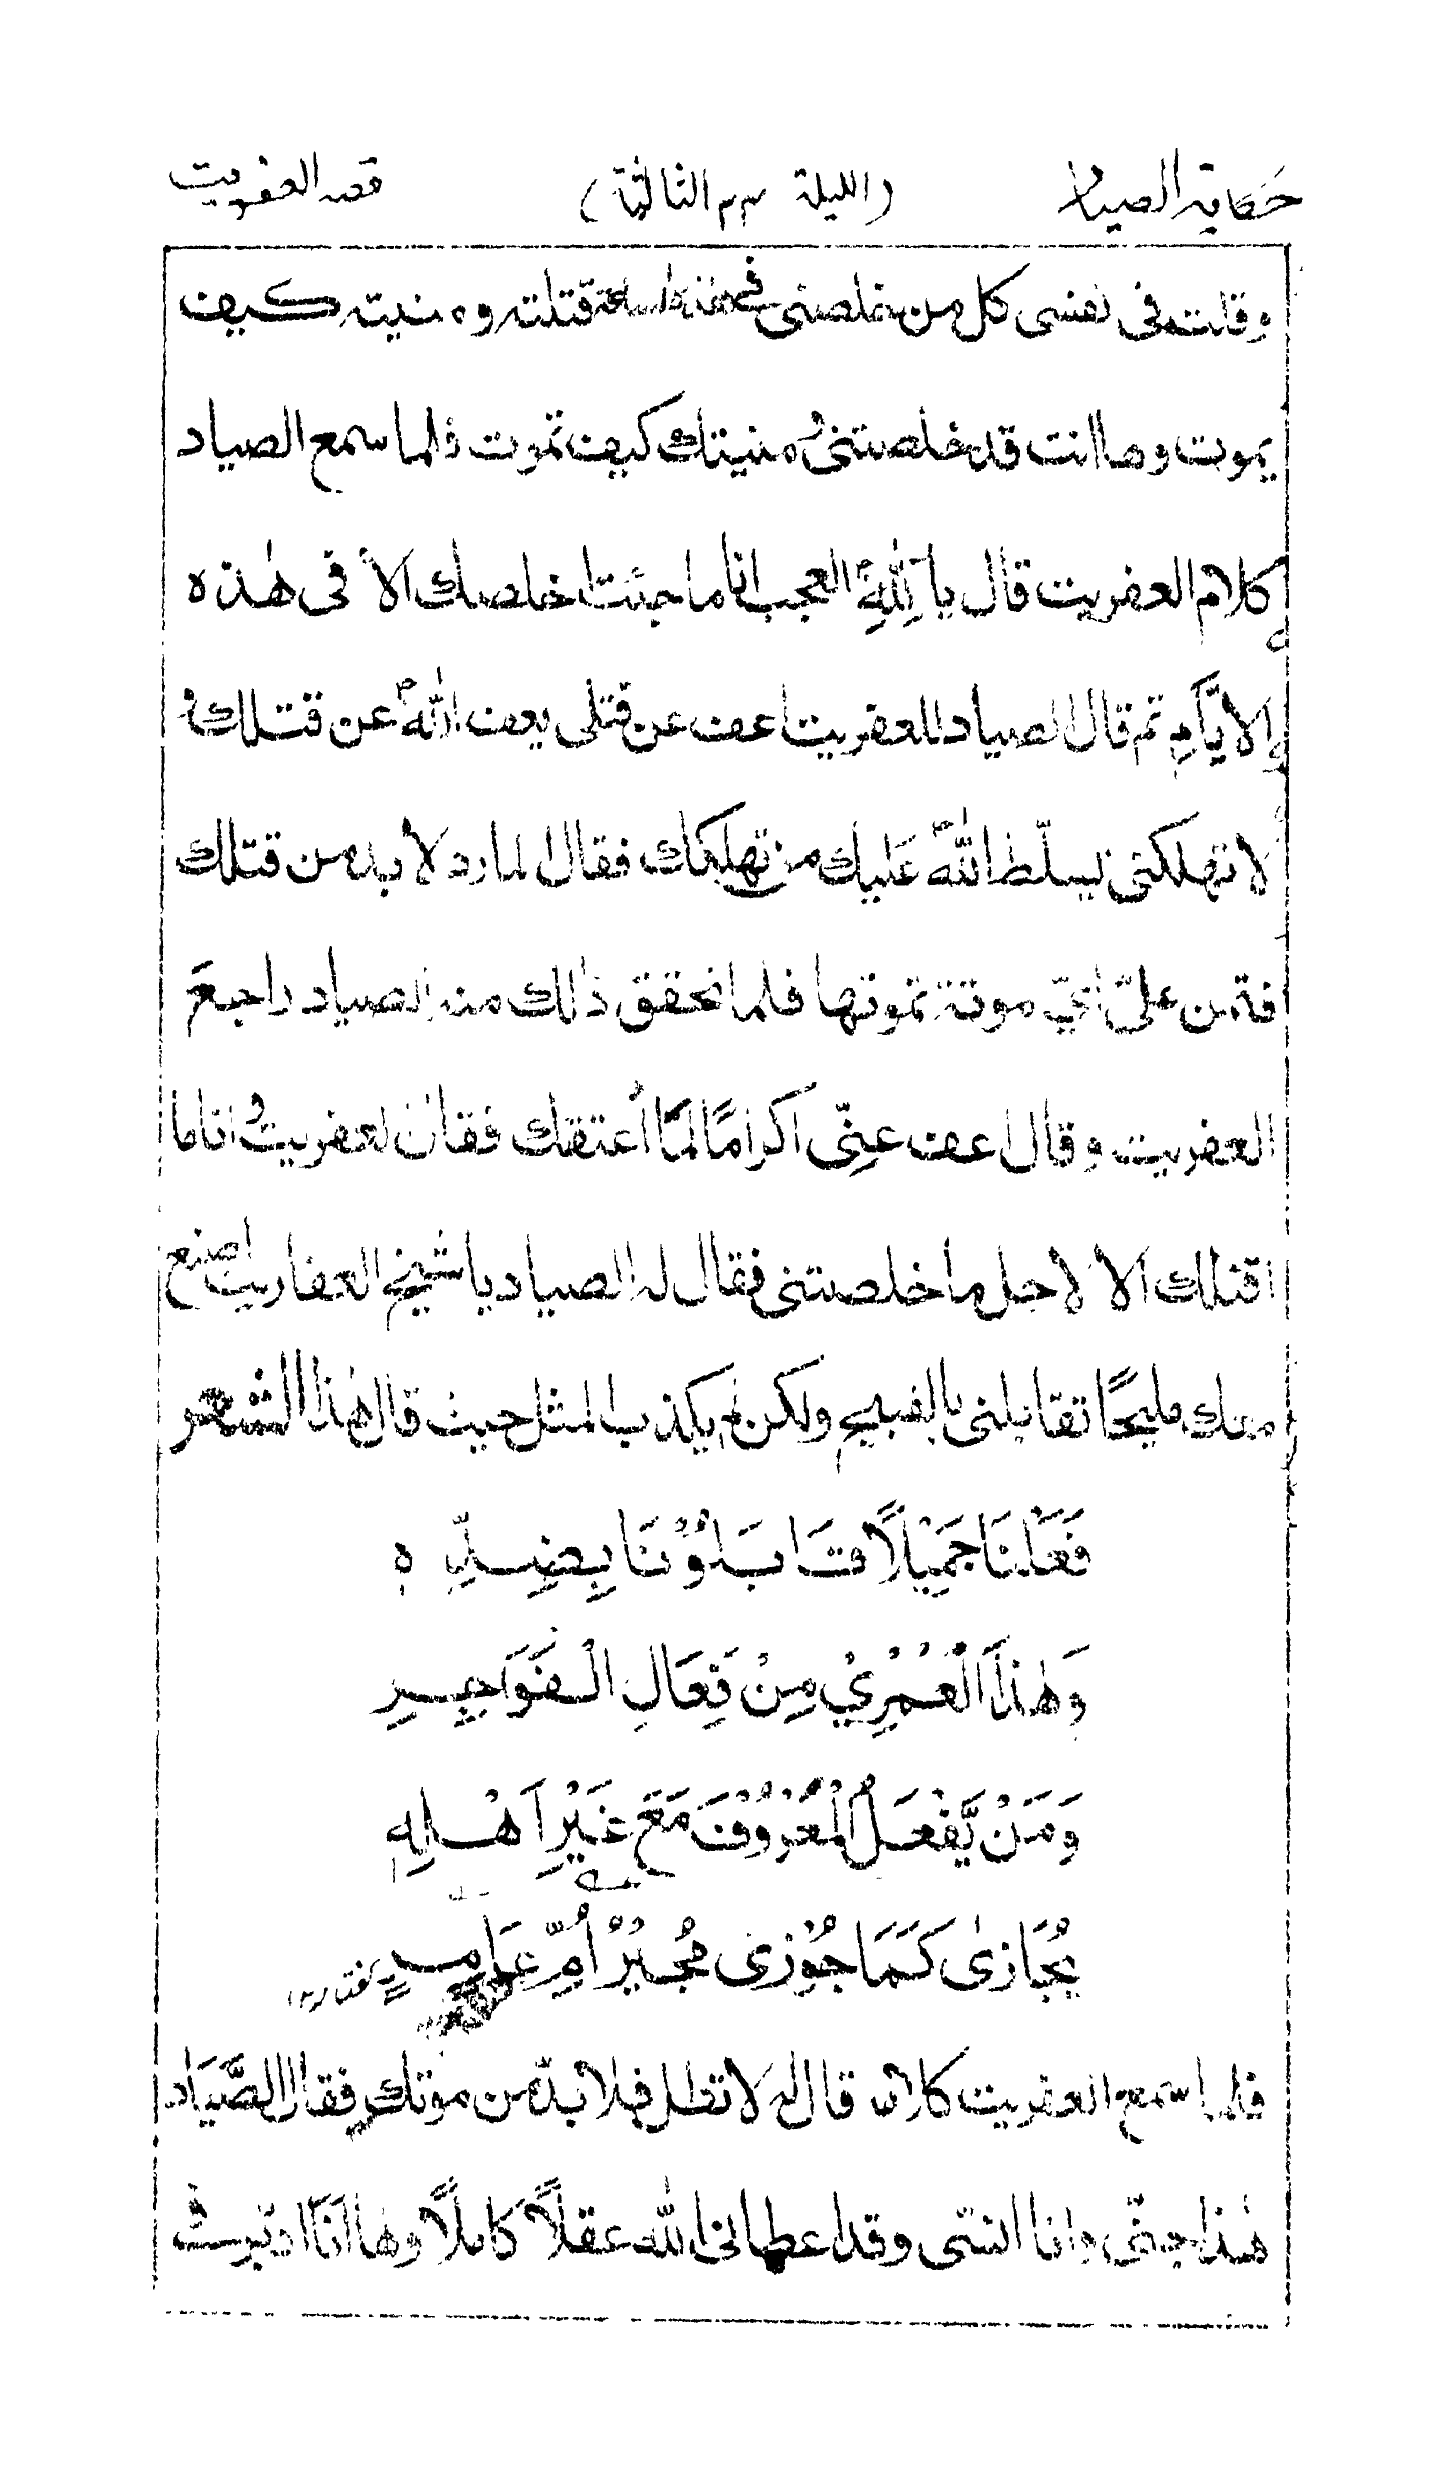 حكاية الصياد (الليلة ٣ م الثالثة) قصه العفريت
وقلت في نفسي كل من خلصني في هذه الساعة قتلته ومنيته كيف
يموت وها انت قد خلصتني ومنيتك كيف تموت فلما سمع الصياد
كلام العفريت قال يا لله العجب انا ما جئت اخلصك الا في هذه
الايّام ثم قال الصياد للعفريت اعف عن قتلي يعف اللهُ عن قتلك و
لا تهلكني يسلّط اللهُ عليك من يهلكك فقال المارد لا بد من قتلك
فتمن عليّ ايّ موتة تموتها فلما تحقق ذالك منه الصياد راجعَ
العفريت وقال اعف عنّي اكرامًا لمّا اُعتقك فقال العفريت و انا ما
اقتلك الا لاجل ما خلصتني فقال له الصياد يا شيخ العفاريت اصنع
معك مليحًا تقابلني بالقبيح ولكن لم يكذب المثل حيث قال هٰذا الشعر
فَعَلْنَا جَمِيْلًا قَابَلُوْنَا بِضِدِّهِ
وَهٰذَا لَعَمْرِيْ مِنْ فِعَالِ الْفَوَاجِرِ
وَمَنْ يَّفْعَلُ الْمَعْرُوْفَ مَعَ غَيْرِ اَهْلِهِ
يُجَازٰى كَمَا جُوْزِىَ مُجِيْرُ اُمِّ عَامِرٍ
فلما سمع العفريت كلامه قال له لا تطل فلا بدّ من موتك فقال الصَّيَاد
هٰذا جنّي وانا انسي وقد اعطاني الله عقلاً كاملاً وها اَنَا ادبّر في